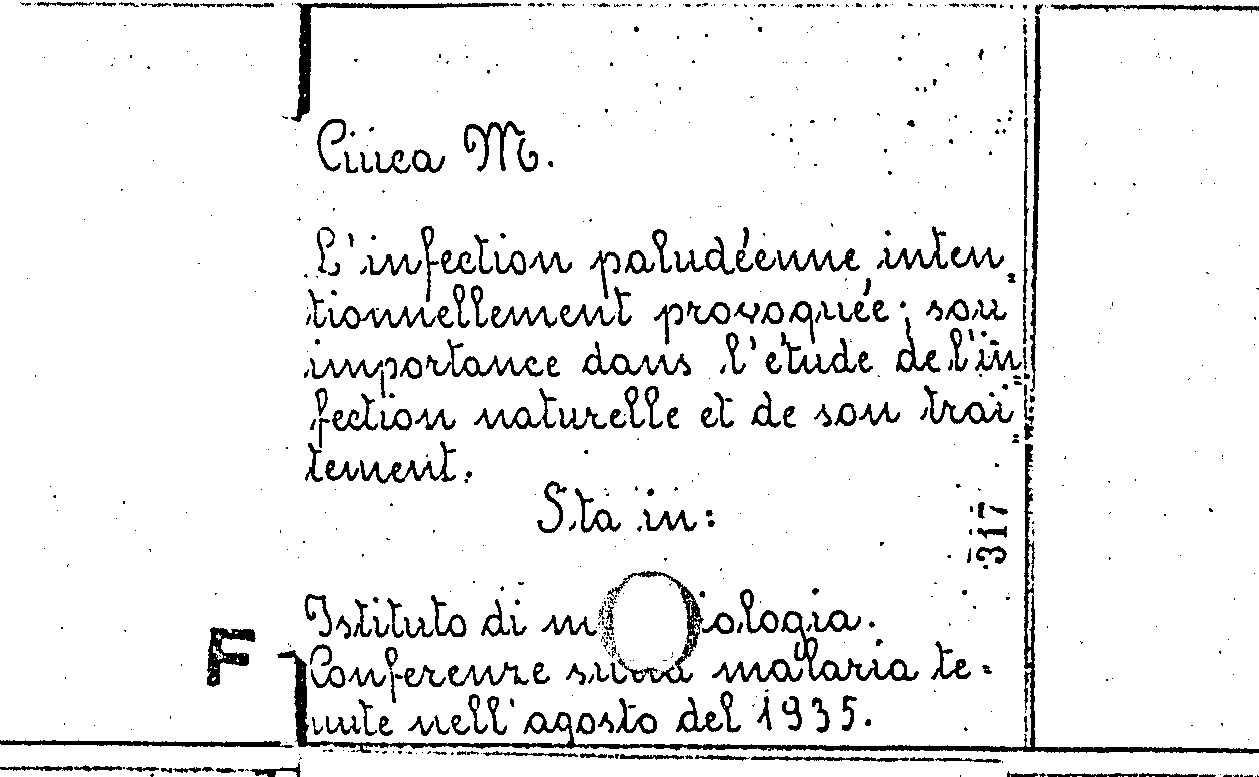 Ciuca M.
L'infection paludéenne inten
tionnellement provoquée; son
importance dans l'étude de l'in
fection naturelle et de son trai
tement.
Sta in:
317
Istituto di m iologia.
F
Conferenze sulla malaria te=
nute nell'agosto del 1935.